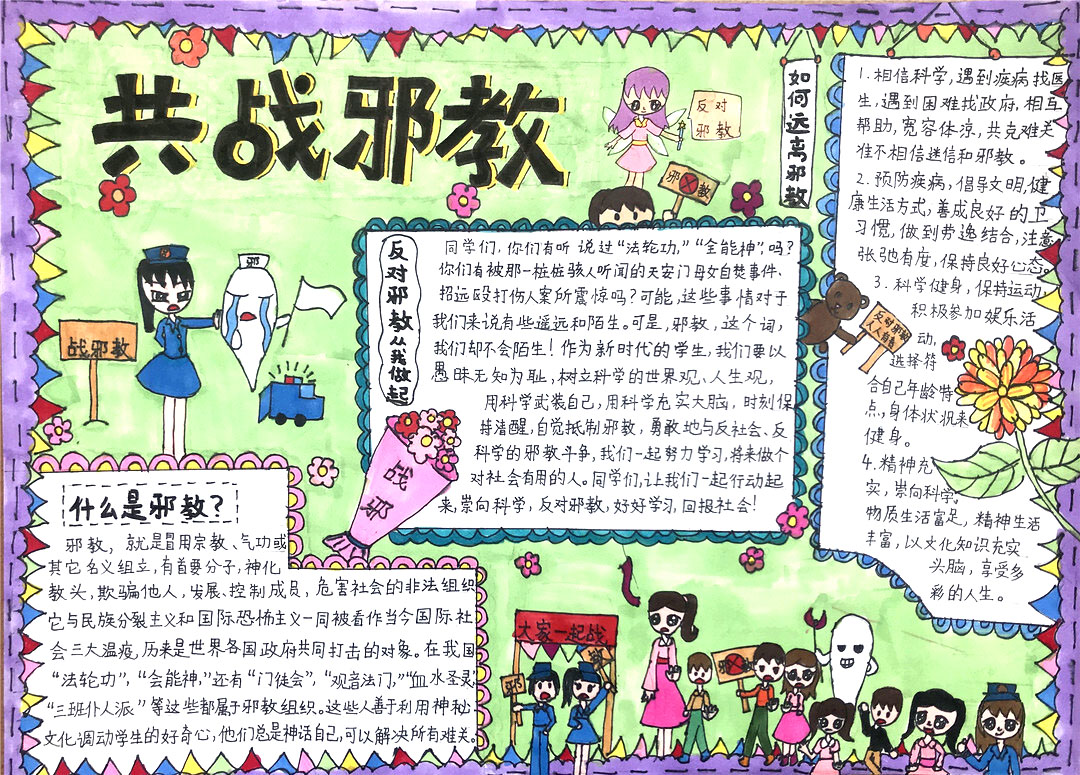 共战邪教
反对
邪教
邪教
邪
战邪教
什么是邪教?
邪教，就是冒用宗教、气功或
其它名义组立，有首要分子，神化
教头，欺骗他人，发展、控制成员，危害社会的非法组织
它与民族分裂主义和国际恐怖主义一同被看作当今国际社
会三大温疫，历来是世界各国政府共同打击的对象。在我国
“法轮功”，“会能神，”还有“门徒会”，“观音法门，”“血水圣灵”
“三班仆人派”等这些都属于邪教组织。这些人善于利用神秘
文化调动学生的好奇心，他们总是神话自己，可以解决所有难关。
反对邪教从我做起
同学们，你们有听说过“法轮功，”“全能神”，吗？
你们有被那一桩桩骇人听闻的天安门母女自焚事件、
招远殴打伤人案所震惊吗？可能，这些事情对于
我们来说有些遥远和陌生。可是，邪教，这个词，
我们却不会陌生！作为新时代的学生，我们要以
愚昧无知为耻，树立科学的世界观、人生观，
用科学武装自己，用科学充实大脑，时刻保
持清醒，自觉抵制邪教，勇敢地与反社会、反
科学的邪教斗争，我们一起努力学习，将来做个
对社会有用的人。同学们，让我们一起行动起
来，崇向科学，反对邪教，好好学习，回报社会！
战
邪
如何远离邪教
1.相信科学，遇到疾病找医
生，遇到困难找政府，相互
帮助，宽容体凉，共克难关
准不相信迷信和邪教。
2.预防疾病，倡导文明，健
康生活方式，善成良好的卫
习惯，做到劳逸结合，注意
张弛也有度，保持良好心态。
3.科学健身，保持运动，
积极参加娱乐活
动，
选择符
合自己年龄特
点，身体状况来
健身。
4.精神充
实，崇向科学，
物质生活富足，精神生活
丰富，以文化知识充实
头脑，享受多
彩的人生。
反对邪教
人人有责
大家一起战
邪
邪教